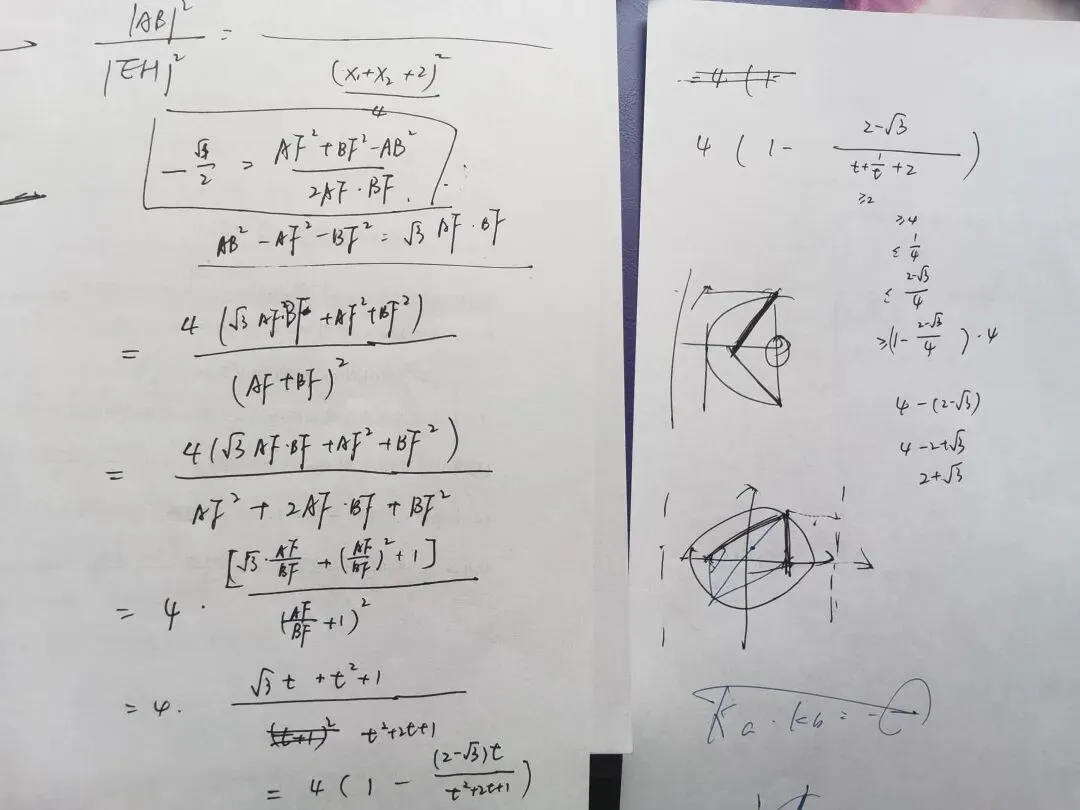 |AB|² / |EH|² = ——— / (x₁+x₂+2)²/4
-√3/2 = (AF²+BF²-AB²) / (2AF·BF)
AB²-AF²-BF² = √3 AF·BF
= 4(√3 AF·BF+AF²+BF²) / (AF+BF)²
= 4(√3 AF·BF+AF²+BF²) / (AF²+2AF·BF+BF²)
= 4·[√3·AF/BF+(AF/BF)²+1] / (AF/BF+1)²
= 4·(√3t+t²+1) / (t²+2t+1)
= 4(1-(2-√3)t/(t²+2t+1))
= 4(1-
4(1-(2-√3)/(t+1/t+2))
≥2
≥4
≤1/4
≤(2-√3)/4
≥(1-(2-√3)/4)·4
4-(2-√3)
4-2+√3
2+√3